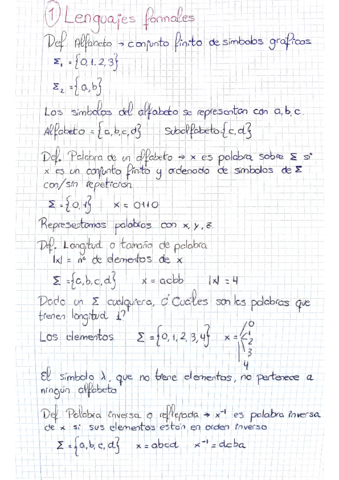 1) Lenguajes formales
Def Alfabeto → conjunto finito de simbolos graficos
Σ₁ = {0,1,2,3}
Σ₂ = {a,b}
Los simbolos del alfabeto se representan con a,b,c
Alfabeto = {a,b,c,d} Subalfabeto {c,d}
Def. Palabra de un alfabeto → x es palabra sobre Σ si
x es un conjunto finito y ordenado de simbolos de Σ
con/sin repeticion
Σ = {0,1} x = 0110
Representamos palabras con x, y, z
Def. Longitud o tamaño de palabra
|x| = nº de elementos de x
Σ = {a,b,c,d} x = acbb |x| = 4
Dado un Σ cualquiera, ¿Cuales son las palabras que
tienen longitud 1?
Los elementos Σ = {0,1,2,3,4} x = 0
1
2
3
4
El simbolo λ, que no tiene elementos, no pertenece a
ningún alfabeto
Def Palabra inversa o reflejada → x⁻¹ es palabra inversa
de x si sus elementos están en orden inverso
Σ = {a,b,c,d} x = abcd x⁻¹ = dcba